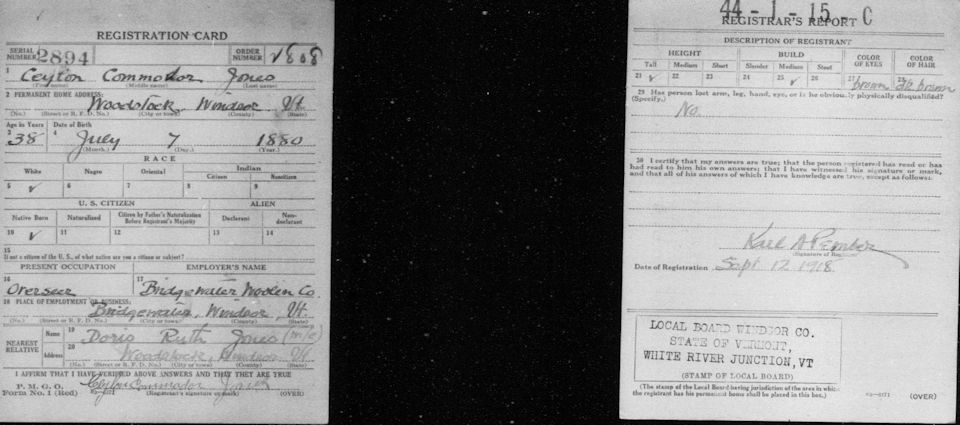 REGISTRATION CARD
SERIAL NUMBER 2894 ORDER NUMBER
1 Ceylon Commodor Jones
(First name) (Middle name) (Last name)
2 PERMANENT HOME ADDRESS:
Woodstock, Windsor, Vt.
(No.) (Street or R. F. D. No.) (City or town) (County) (State)
Age in Years Date of Birth
3 38 4 July 7 1880
(Month.) (Day.) (Year.)
RACE
White Negro Oriental Indian
Citizen Noncitizen
5 ✓ 6 7 8 9
U. S. CITIZEN ALIEN
Native Born Naturalized Citizen by Father's Naturalization Before Registrant's Majority Declarant Non-declarant
10 ✓ 11 12 13 14
15
If not a citizen of the U. S., of what nation are you a citizen or subject?
PRESENT OCCUPATION EMPLOYER'S NAME
16 Overseer 17 Bridgewater Woolen Co.
18 PLACE OF EMPLOYMENT OR BUSINESS:
Bridgewater, Windsor, Vt.
(No.) (Street or R. F. D. No.) (City or town) (County) (State)
NEAREST RELATIVE
Name 19 Doris Ruth Jones
Address 20 Woodstock, Windsor, Vt.
(No.) (Street or R. F. D. No.) (City or town) (County) (State)
I AFFIRM THAT I HAVE VERIFIED ABOVE ANSWERS AND THAT THEY ARE TRUE
P. M. G. O.
Form No. 1 (Red) Ceylon Commodor Jones
(Registrant's signature or mark) (OVER)
44-1-15-C
REGISTRAR'S REPORT
DESCRIPTION OF REGISTRANT
HEIGHT BUILD COLOR OF EYES COLOR OF HAIR
Tall Medium Short Slender Medium Stout
21 ✓ 22 23 24 25 ✓ 26 27 brown 28 dk brown
29 Has person lost arm, leg, hand, eye, or is he obviously physically disqualified?
(Specify.)
No
30 I certify that my answers are true; that the person registered has read or has
had read to him his own answers; that I have witnessed his signature or mark,
and that all of his answers of which I have knowledge are true, except as follows:
Karl A Pember
(Signature of Registrar)
Date of Registration Sept 12 1918
LOCAL BOARD WINDSOR CO.
STATE OF VERMONT,
WHITE RIVER JUNCTION, VT
(STAMP OF LOCAL BOARD)
(The stamp of the Local Board having jurisdiction of the area in which
the registrant has his permanent home shall be placed in this box.)
(OVER)